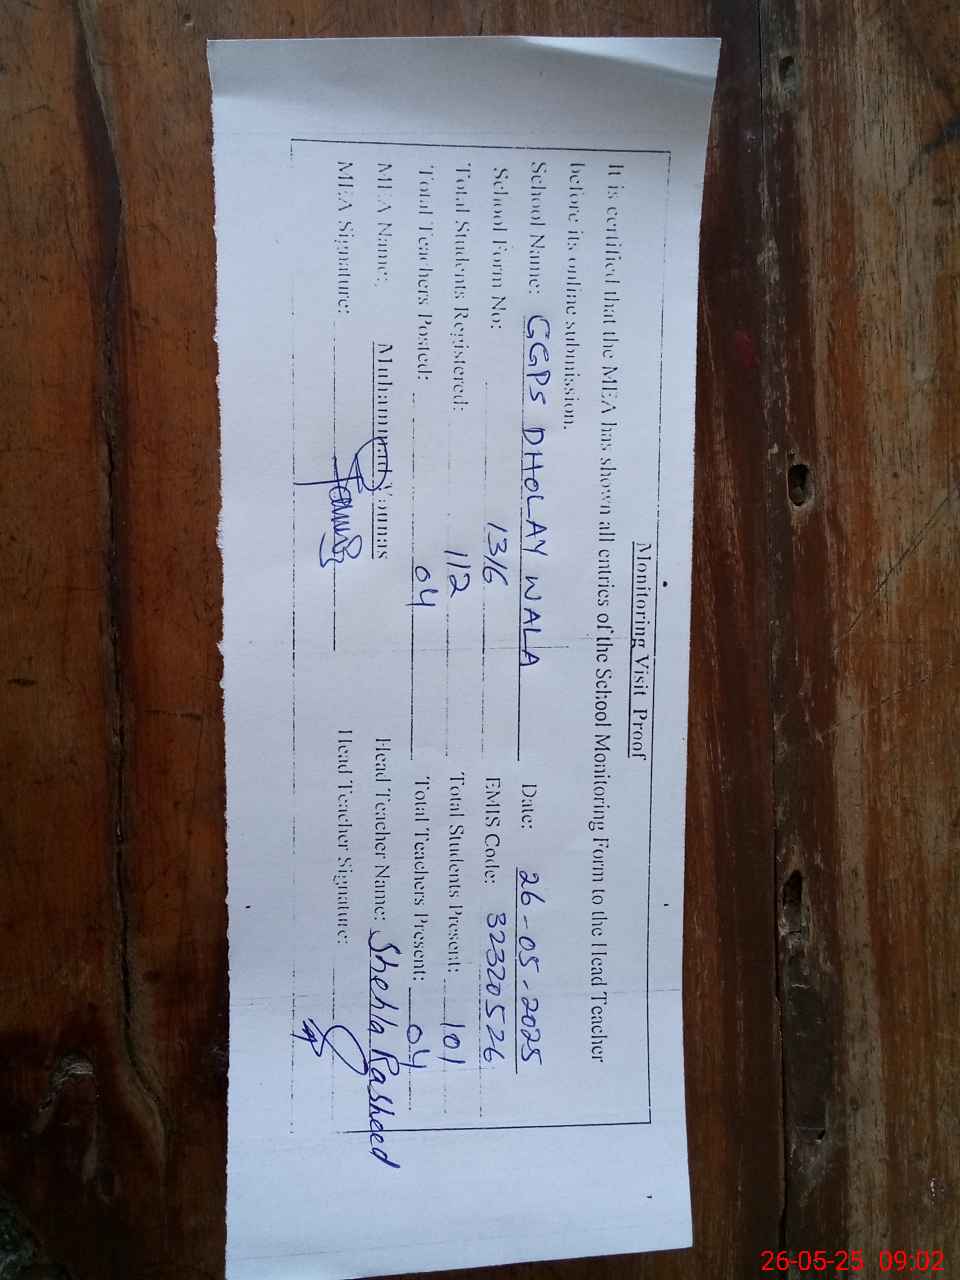 Monitoring Visit Proof
It is certified that the MEA has shown all entries of the School Monitoring Form to the Head Teacher
before its online submission.
School Name: GGPS DHOLAY WALA Date: 26-05-2025
School Form No: 1316 EMIS Code: 32320526
Total Students Registered: 112 Total Students Present: 101
Total Teachers Posted: 04 Total Teachers Present: 04
MEA Name: Muhammad Younas Head Teacher Name: Shehla Rasheed
MEA Signature: Head Teacher Signature:
26-05-25 09:02